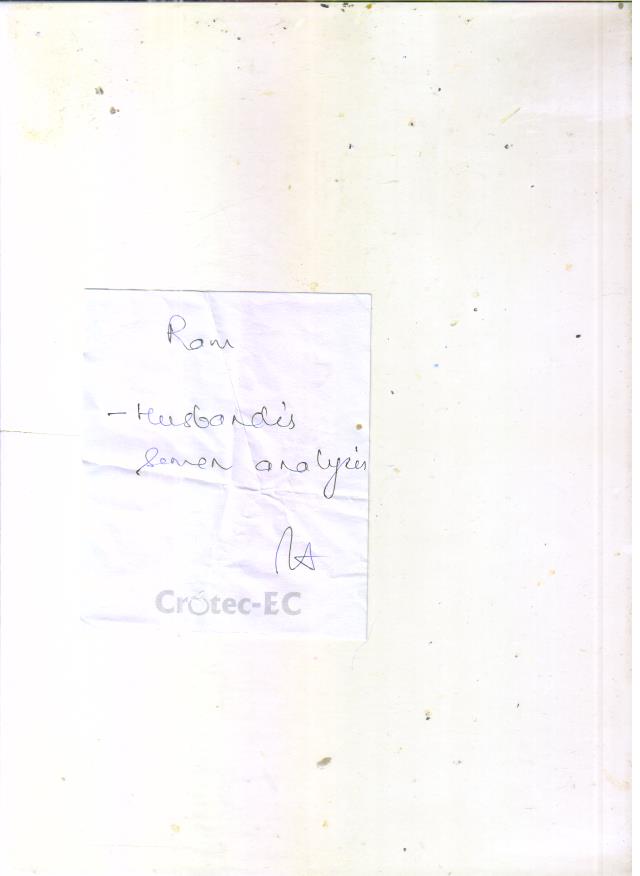 Ram
- Husband's
semen analysis
Crotec-EC